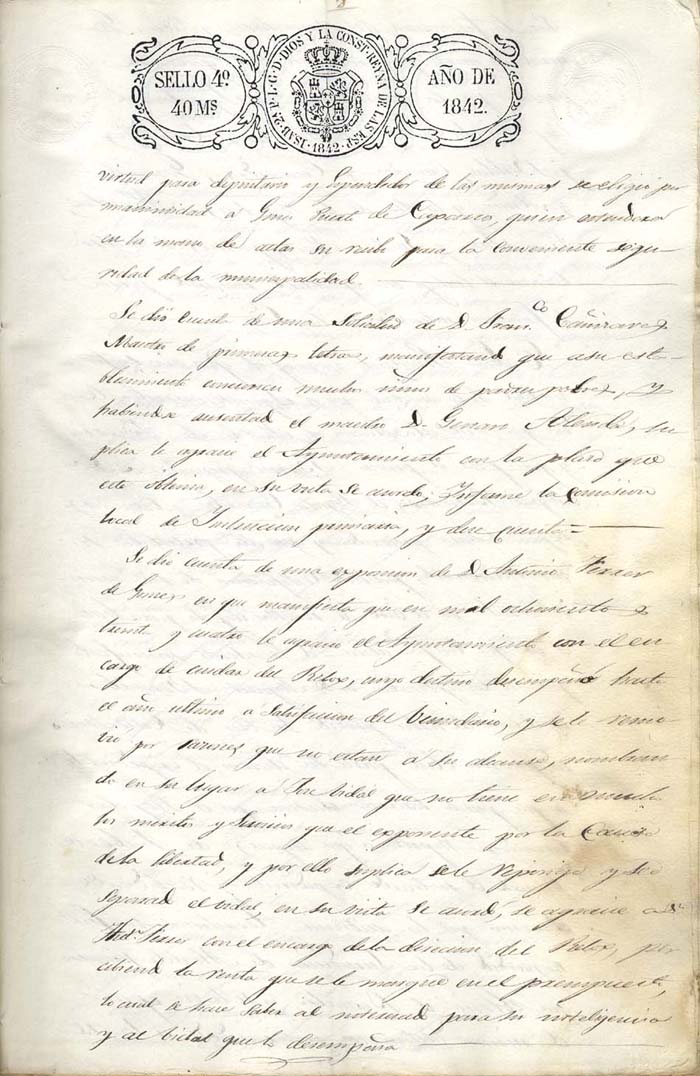 SELLO 4º
40 Ms
ISAB. 2ª P. L. G. D. DIOS Y LA CONST. REYNA DE LAS ESP.
1842
AÑO DE
1842.
virtud para depositario y de las mismas se eligió por
unanimidad a de quien estenderá
en la mano de actas su recibo para la conveniente segu-
ridad de la municipalidad.
Se dió cuenta de una Solicitud de D. Franco. Cañizares
Maestro de primeras letras, manifestando que a su esta-
blecimiento concurren muchos niños de padres pobres, y
habiendose ausentad el maestro D. Genaro su
plica le agracie el Ayuntamiento con la plaza que
este obtenia, en su vista se acordó; Informe la Comision
local de Instruccion primaria, y dese cuenta =
Se dió cuenta de una exposicion de D. Antonio Ferrer
de Gomez en que manifiesta que en mil ochocientos
treinta y cuatro le agració el Ayuntamiento con el en
cargo de cuidar del Relox, cuyo destino desempeñó hasta
el año ultimo a satisfaccion del Vecindario, y se le remo-
vió por razones que no estan á su alcance, nombran
do en su lugar á Jose Vidal que no tiene en
los meritos y servicios que el exponente por la Causa
de la libertad, y por ello suplica se le reponga y sea
separad el Vidal, en su vista se acordó, se agracie a dho
Anto. Ferrer con el encargo de la direccion del Relox, per
cibiendo la renta que se le marque en el presupuesto,
lo cual se hace saber al interesad para su inteligencia
y al Vidal que lo desempeña